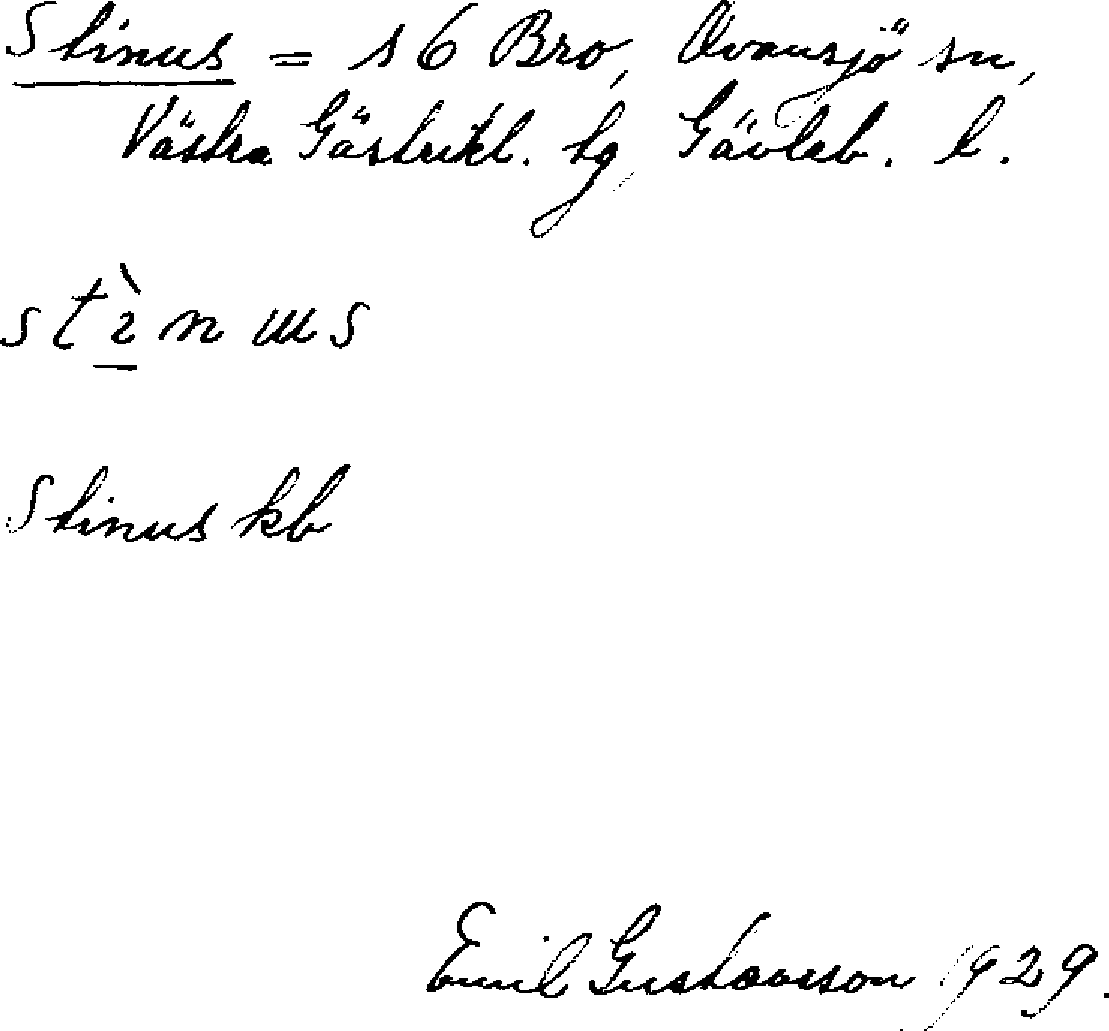 Stinus = s 6 Bro, Ovansjö sn,
Västra Gästrikl. tg, Gävleb. l.
stὶnɯs
Stinus kb
Emil Gustavsson 1929.